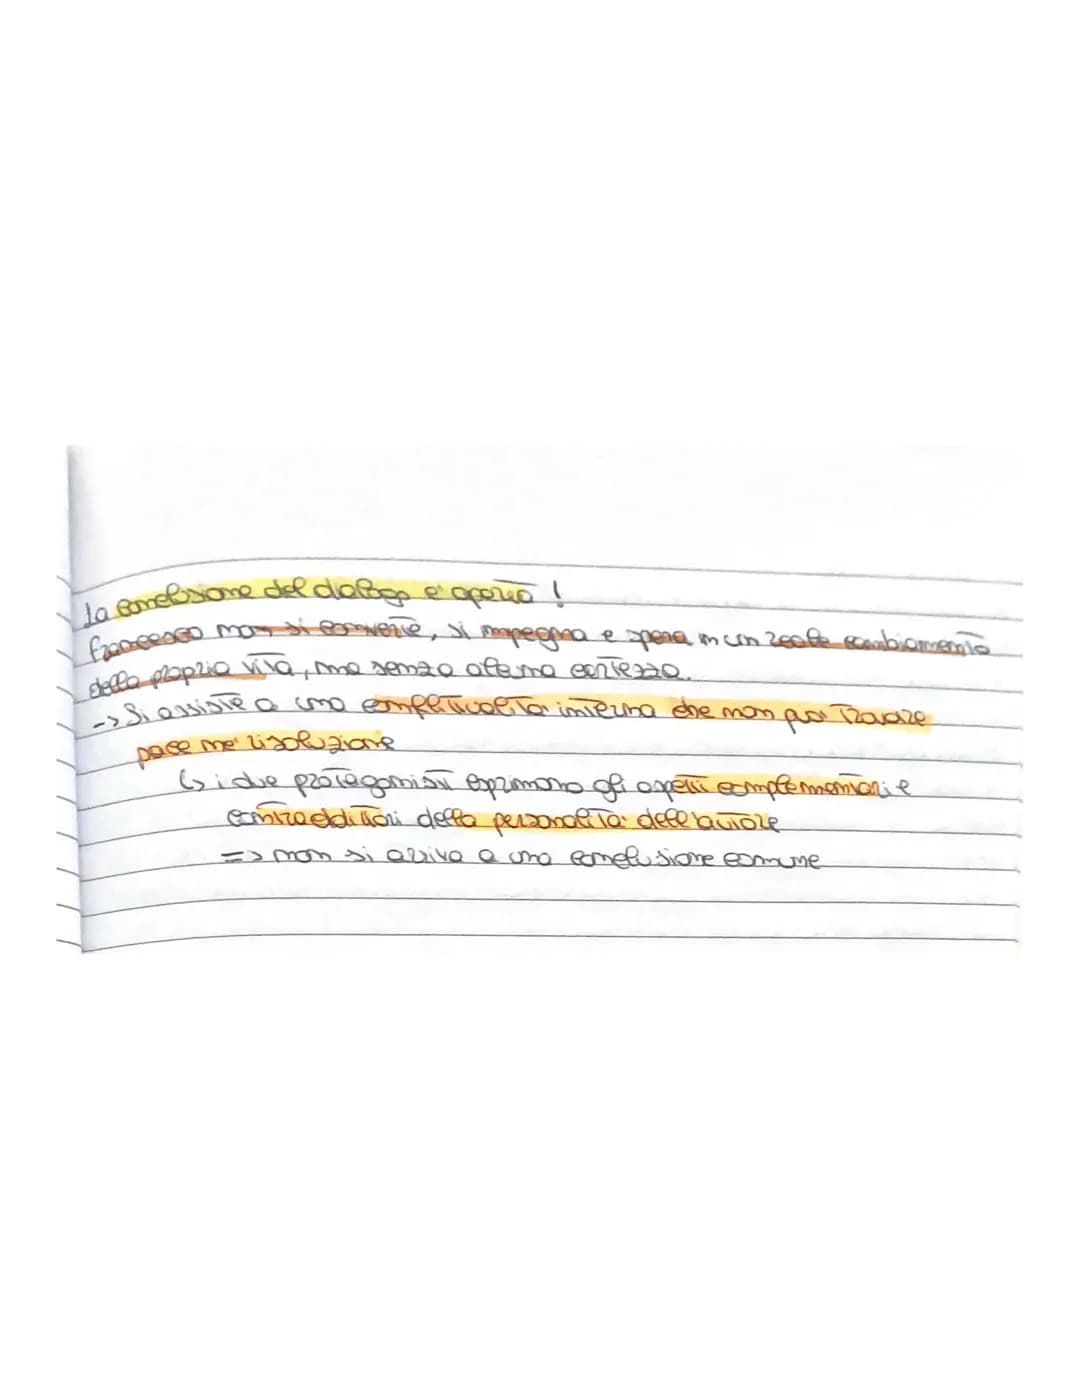 La conclusione del dialogo e' aperta !
Francesco non si converte, si impegna e spera in un reale cambiamento
della propria vita, ma senza alcuna certezza.
-> Si assiste a una conflittualità interna che non può trovare
pace né risoluzione
↳ i due protagonisti esprimono gli aspetti complementari e
contraddittori della personalità dell'autore
=> non si arriva a una conclusione comune